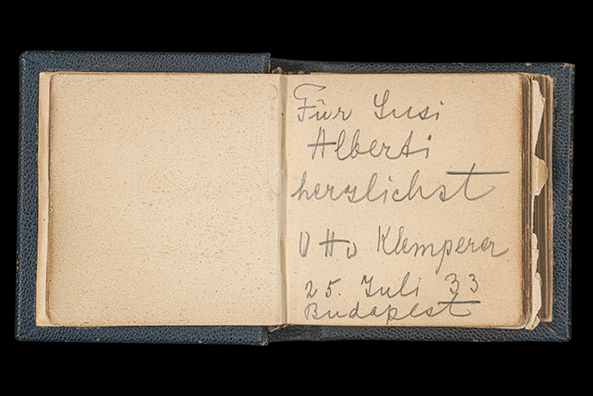 Für Susi
Alberti
herzlichst
Otto Klemperer
25. Juli 33
Budapest